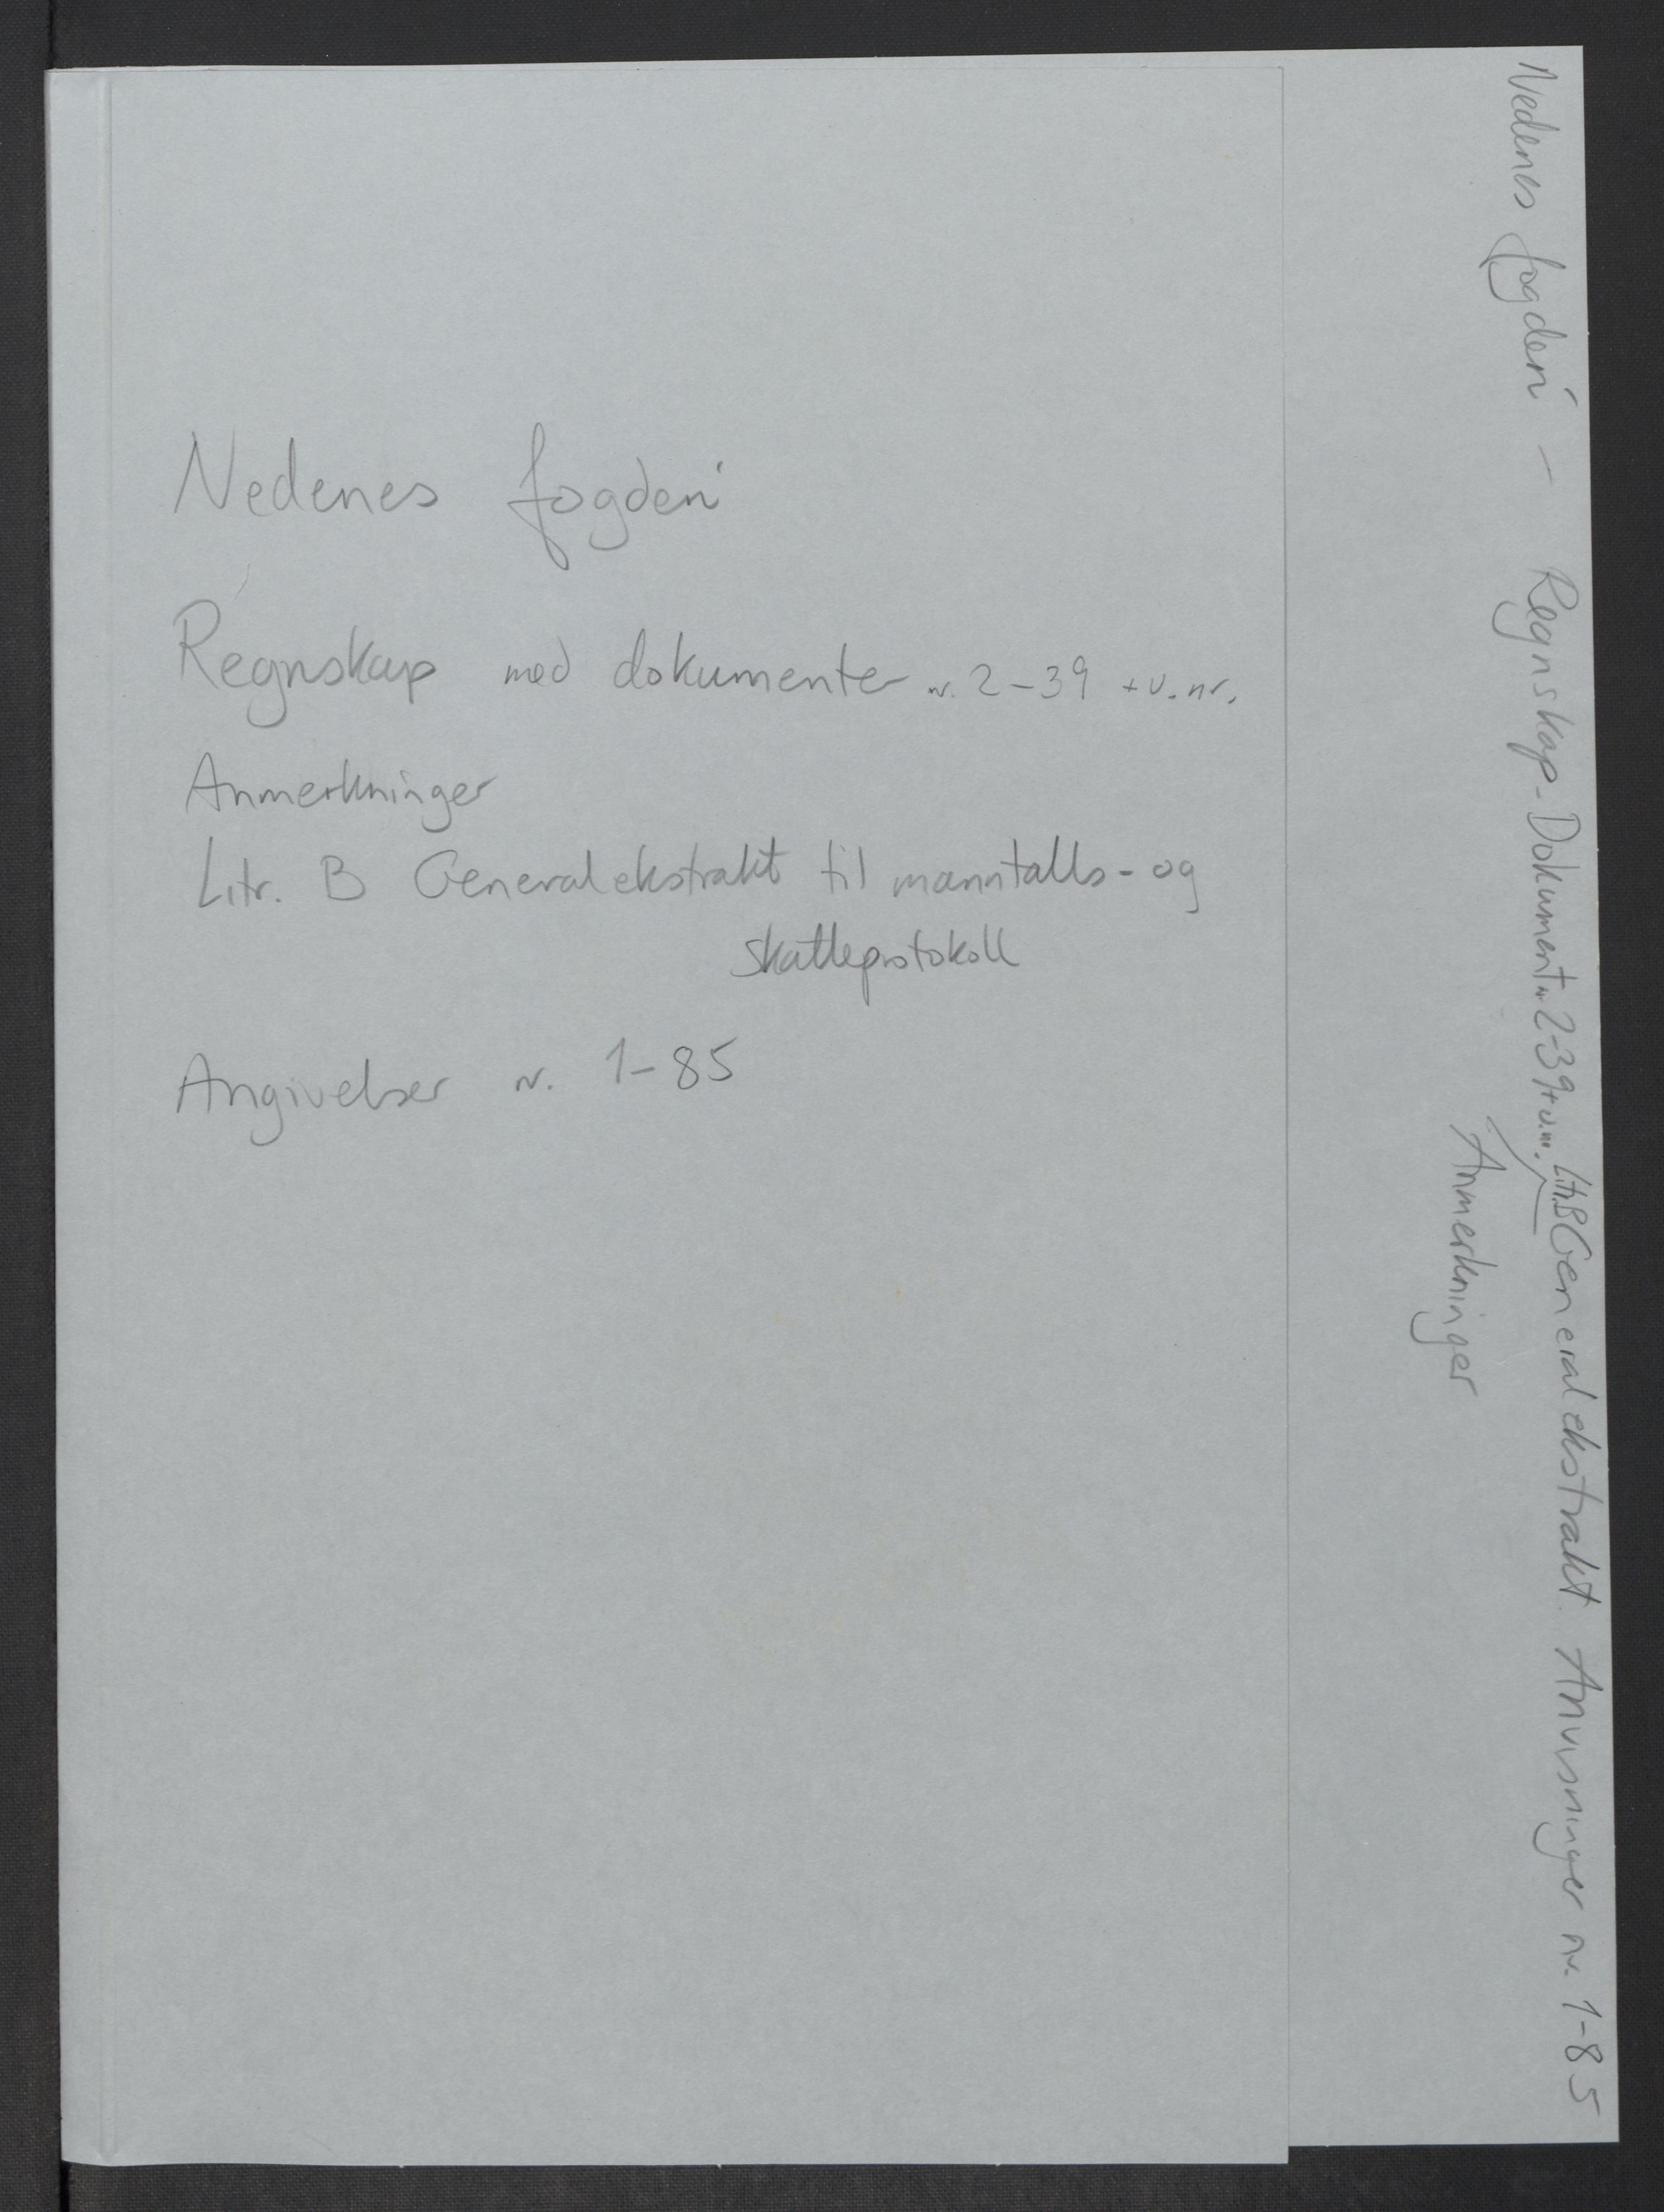 Nedenes fogderi
Regnskap med dokumenter nr. 2-39 + u.nr.
Anmerkninger
Litr. B Generalekstrakt til manntalls- og
skatteprotokoll
Angivelser nr. 1-85
Nedenes fogderi - Regnskap - Dokument nr 2-39 + u.nr. Litr. B Generalekstrakt. Anvisninger nr. 1-85
Anmerkninger